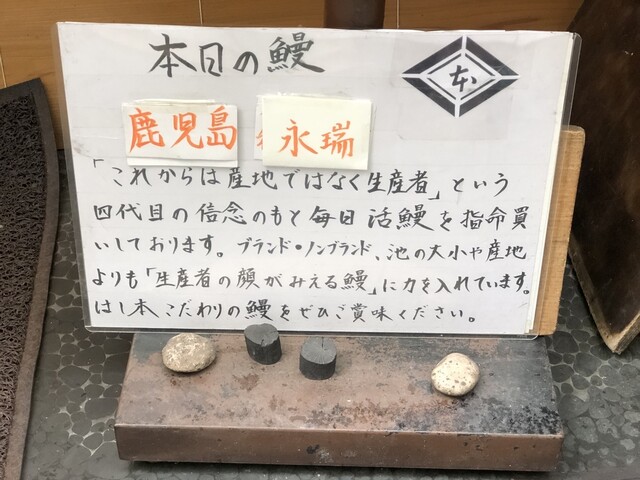 本日の鰻
本
鹿児島 永瑞
「これからは産地ではなく生産者」という
四代目の信念のもと毎日活鰻を指命買
いしております。ブランド・ノンブランド、池の大小や産地
よりも「生産者の顔がみえる鰻」に力を入れています。
はし本こだわりの鰻をぜひご賞味ください。